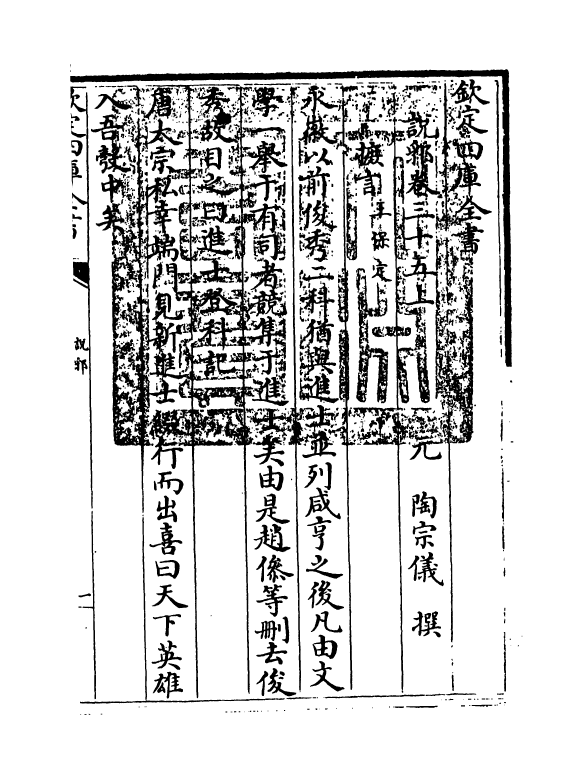 欽定四庫全書
說郛卷三十五上
元 陶宗儀 撰
摭言 王保定
永徽以前俊秀二科猶與進士並列咸亨之後凡由文
學一舉于有司者競集于進士矣由是趙傪等刪去俊
秀故目之曰進士登科記
唐太宗私幸端門見新進士綴行而出喜曰天下英雄
入吾彀中矣
欽定四庫全書
說郛
一